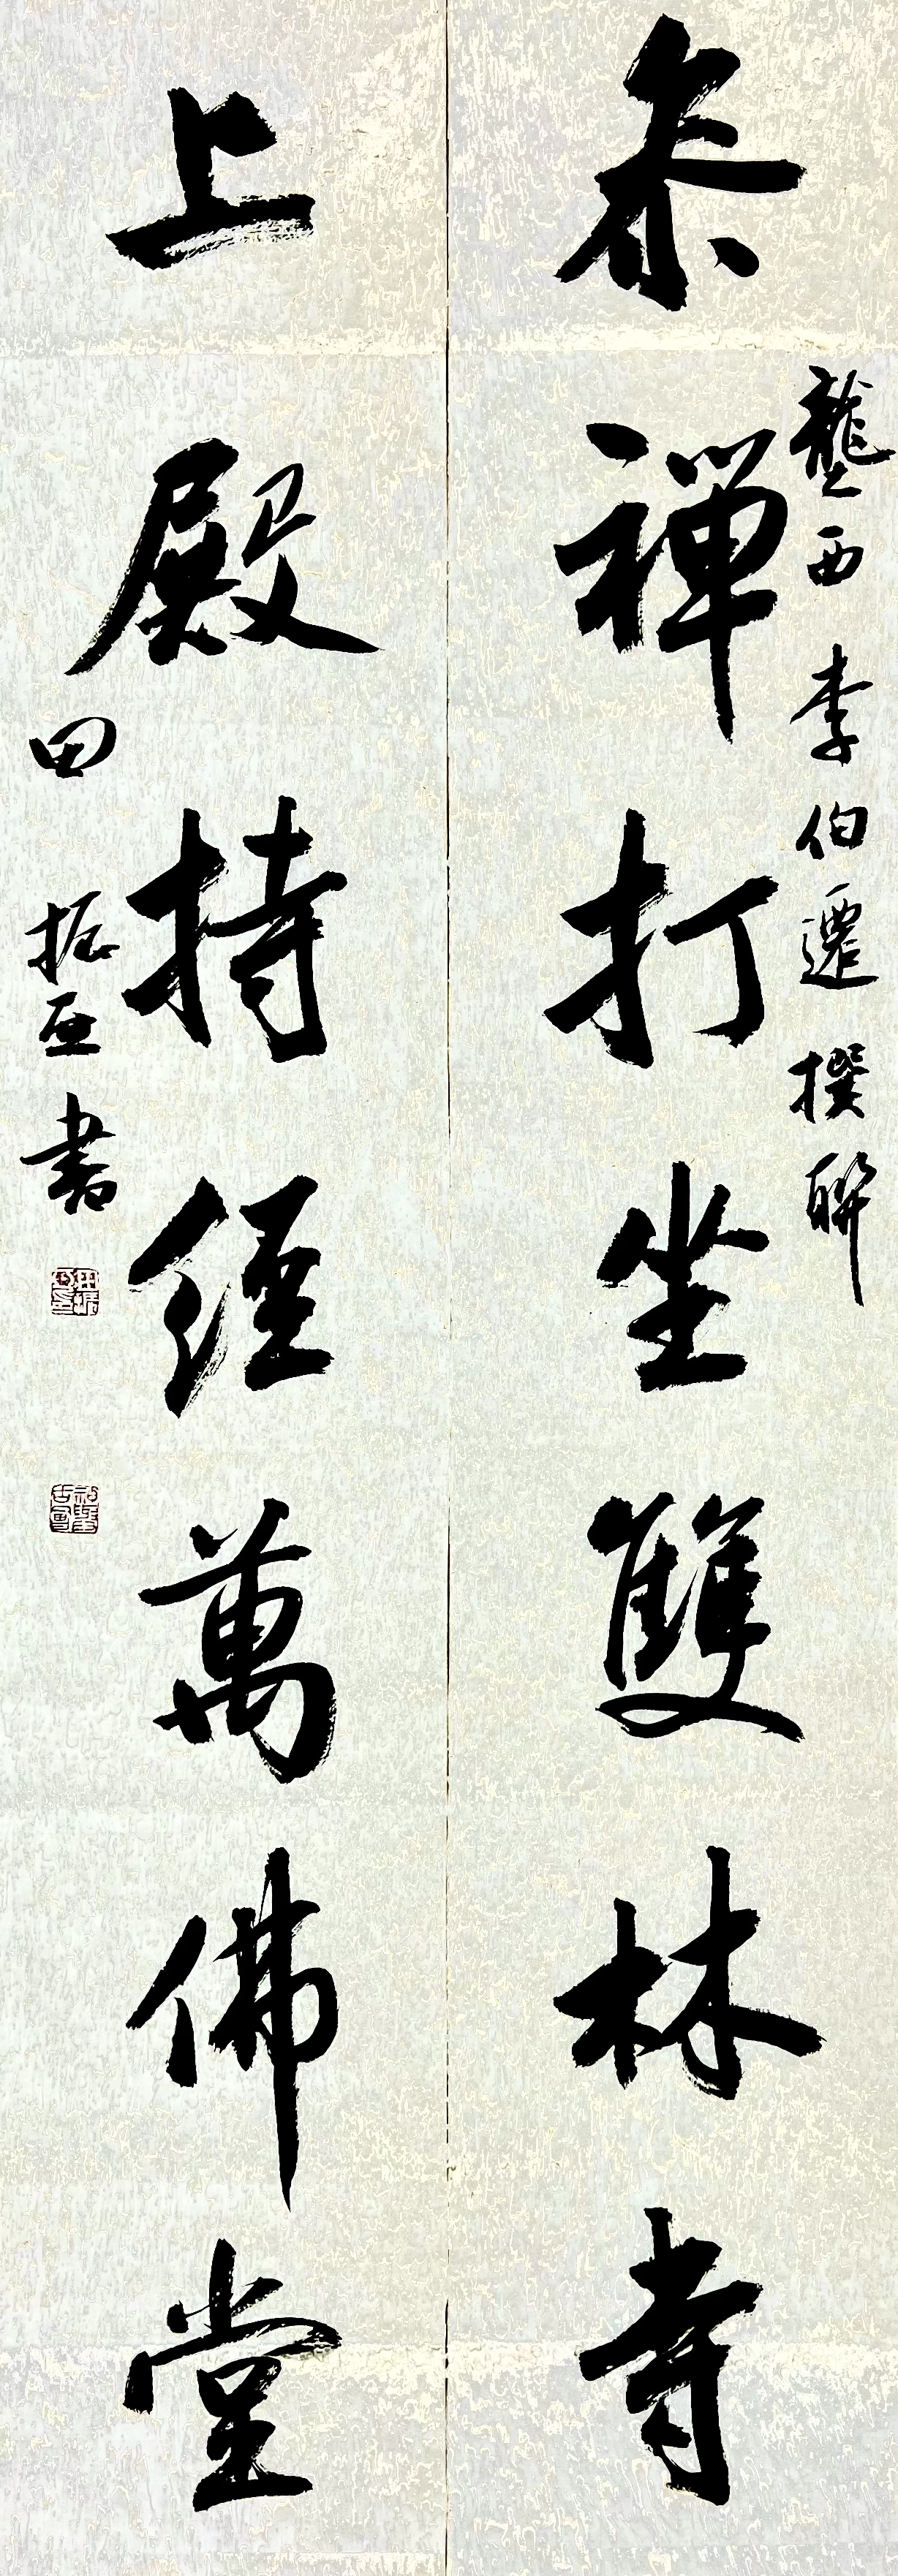 參禪打坐雙林寺
龏西李伯遷撰聯
上殿持經萬佛堂
田振亞書